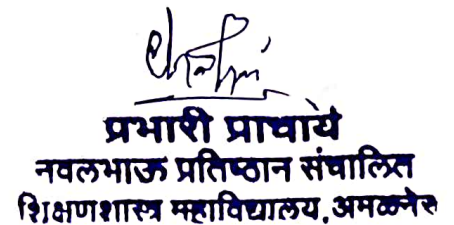 प्रभारी प्राचार्य
नवलभाऊ प्रतिष्ठान संचालित
शिक्षणशास्त्र महाविद्यालय, अमळनेर